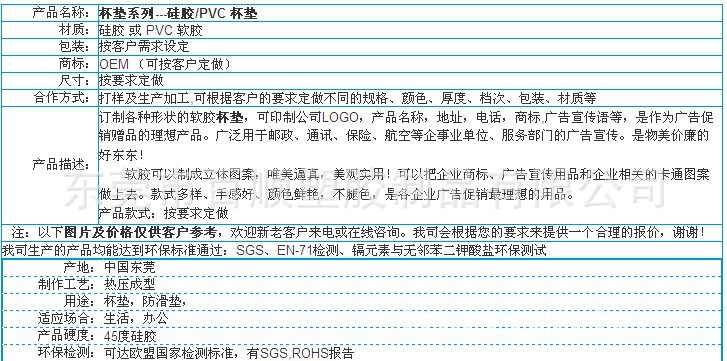 产品名称： 杯垫系列---硅胶/PVC 杯垫
材质： 硅胶 或 PVC 软胶
包装： 按客户需求设定
商标： OEM （可按客户定做）
尺寸： 按要求定做
合作方式： 打样及生产加工,可根据客户的要求定做不同的规格、颜色、厚度、档次、包装、材质等
订制各种形状的软胶杯垫，可印制公司LOGO，产品名称，地址，电话，商标,广告宣传语等，是作为广告促
销赠品的理想产品。广泛用于邮政、通讯、保险、航空等企事业单位、服务部门的广告宣传。是物美价廉的
好东东！
产品描述：
软胶可以制成立体图案，唯美逼真，美观实用！可以把企业商标、广告宣传用品和企业相关的卡通图案
做上去。款式多样、手感好、颜色鲜艳、不腿色，是各企业广告促销最理想的用品。
产品款式：按要求定做
注：以下图片及价格仅供客户参考，欢迎新老客户来电或在线咨询。我司会根据您的要求来提供一个合理的报价，谢谢！
我司生产的产品均能达到环保标准通过：SGS、EN-71检测、镉元素与无邻苯二钾酸盐环保测试
产地： 中国东莞
制作工艺： 热压成型
用途： 杯垫，防滑垫，
适应场合： 生活，办公
产品硬度： 45度硅胶
环保检测： 可达欧盟国家检测标准，有SGS,ROHS报告